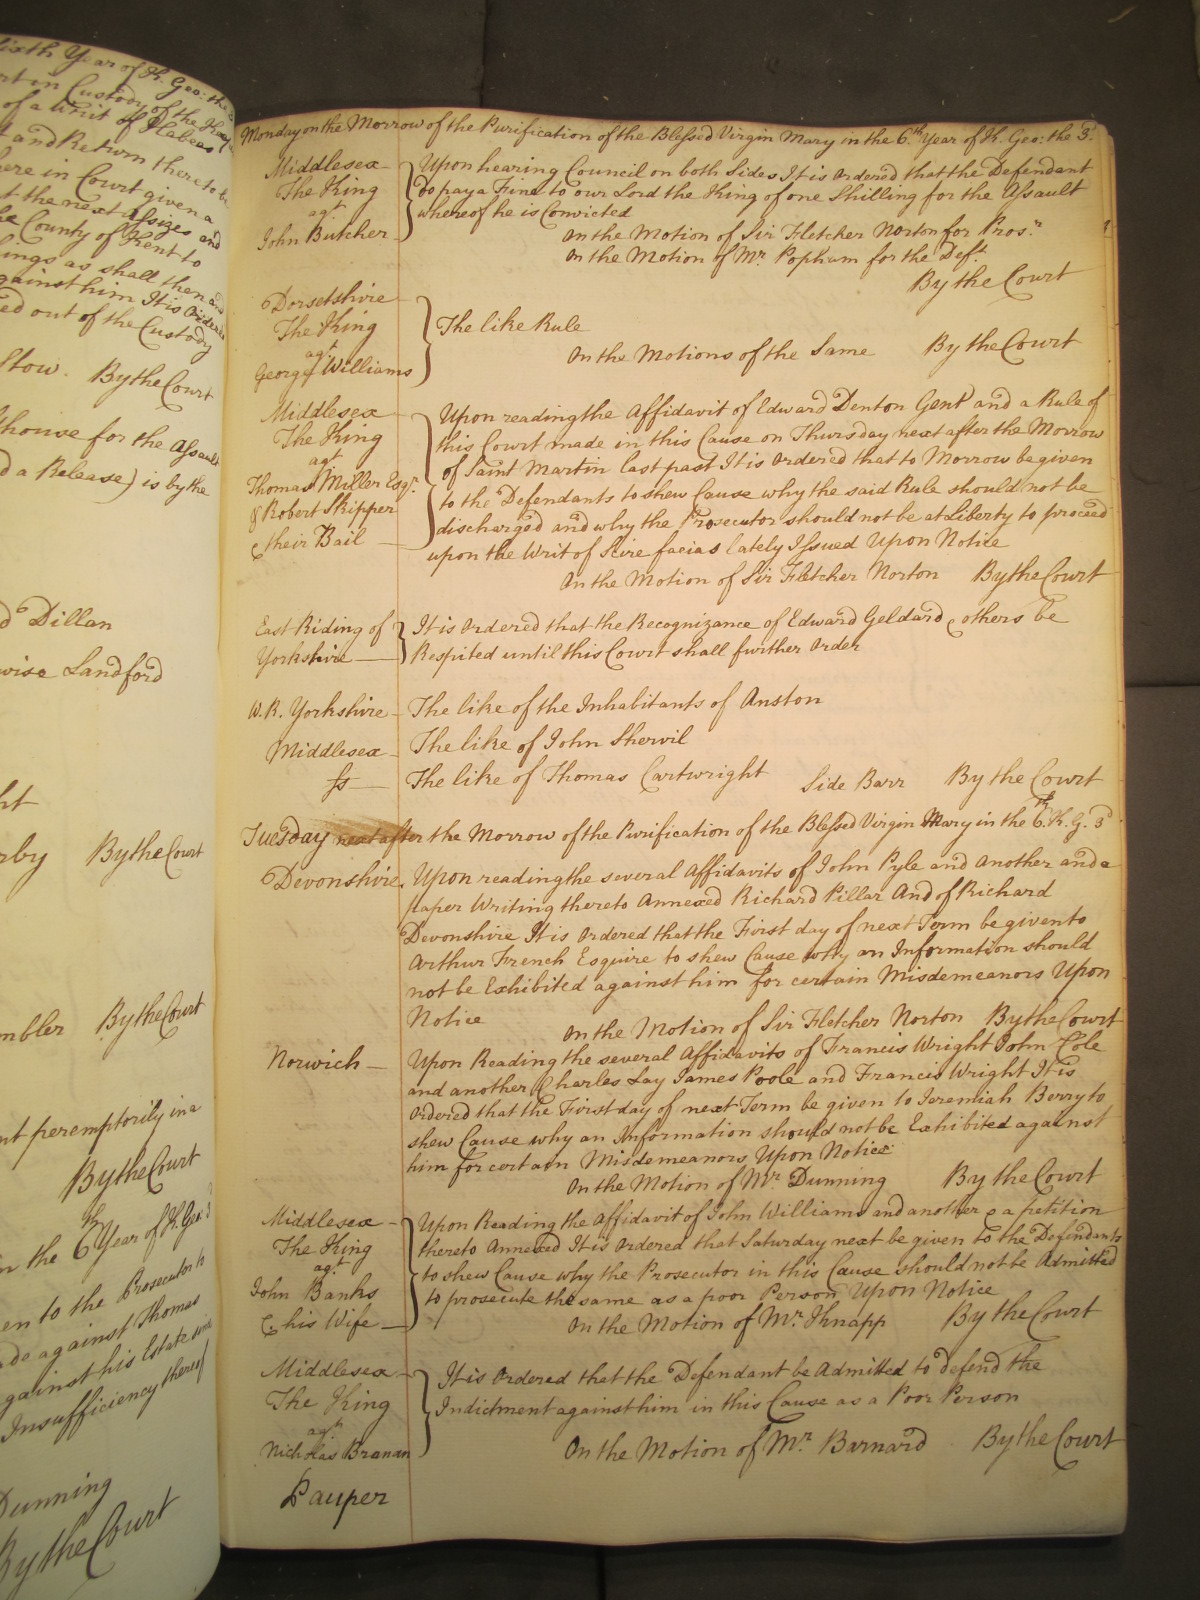 sixth Year of K. Geo: the
Custody of the
of a Writ of Habeas
and Return thereto
here in Court given a
at the next Assizes and
County of Kent to
ings as shall then and
against him It is Ordered
ed out of the Custody
Stow. By the Court
house for the Assault
d a Release) is by the
Dillan
wise Landford
rby By the Court
mbler By the Court
nt peremptorily in a
By the Court
in the 6th Year of K. Geo: 3
en to the Prosecutor
against Thomas
against his Estate
Insufficiency thereof
Dunning
By the Court
Monday on the Morrow of the Purification of the Blessed Virgin Mary in the 6th Year of K. Geo: the 3d.
Middlesex
The King
agt
John Butcher
Upon hearing Council on both Sides It is Ordered that the Defendant
do pay a Fine to our Lord the King of one Shilling for the Assault
whereof he is Convicted
On the Motion of Sir Fletcher Norton for Prosr
On the Motion of Mr. Popham for the Deft.
By the Court
Dorsetshire
The King
agt
George Williams
The like Rule
On the Motions of the Same By the Court
Middlesex
The King
agt
Thomas Miller Esqr.
& Robert Skipper
& their Bail
Upon reading the Affidavit of Edward Denton Gent and a Rule of
this Court made in this Cause on Thursday next after the Morrow
of Saint Martin last past It is Ordered that to Morrow be given
to the Defendants to shew Cause why the said Rule should not be
discharged and why the Prosecutor should not be at Liberty to proceed
upon the Writ of Scire facias lately Issued Upon Notice
On the Motion of Sir Fletcher Norton By the Court
East Riding of
Yorkshire
It is Ordered that the Recognizance of Edward Geldard & others be
Respited until this Court shall further Order
W.R. Yorkshire The like of the Inhabitants of Anston
Middlesex The like of John Shervil
Ss The like of Thomas Cartwright Side Barr By the Court
Tuesday next after the Morrow of the Purification of the Blessed Virgin Mary in the 6th. K. G. 3d
Devonshire. Upon reading the several Affidavits of John Pyle and another and a
paper Writing thereto Annexed Richard Pillar And of Richard
Devonshire It is Ordered that the First day of next Term be given to
Arthur French Esquire to shew Cause why an Information should
not be Exhibited against him for certain Misdemeanors Upon
Notice On the Motion of Sir Fletcher Norton By the Court
Norwich Upon Reading the several Affidavits of Francis Wright John Cole
and another Charles Lay James Poole and Francis Wright It is
Ordered that the First day of next Term be given to Jeremiah Berry to
shew Cause why an Information should not be Exhibited against
him for certain Misdemeanors Upon Notice
On the Motion of Mr Dunning By the Court
Middlesex
The King
agt
John Banks
& his Wife
Upon Reading the Affidavit of John Williams and another & a petition
thereto Annexed It is Ordered that Saturday next be given to the Defendants
to shew Cause why the Prosecutor in this Cause should not be Admitted
to prosecute the same as a poor Person Upon Notice
On the Motion of Mr. Knapp By the Court
Middlesex
The King
agt
Nicholas Branan
Pauper
It is Ordered that the Defendant be Admitted to defend the
Indictment against him in this Cause as a Poor Person
On the Motion of Mr. Barnard By the Court